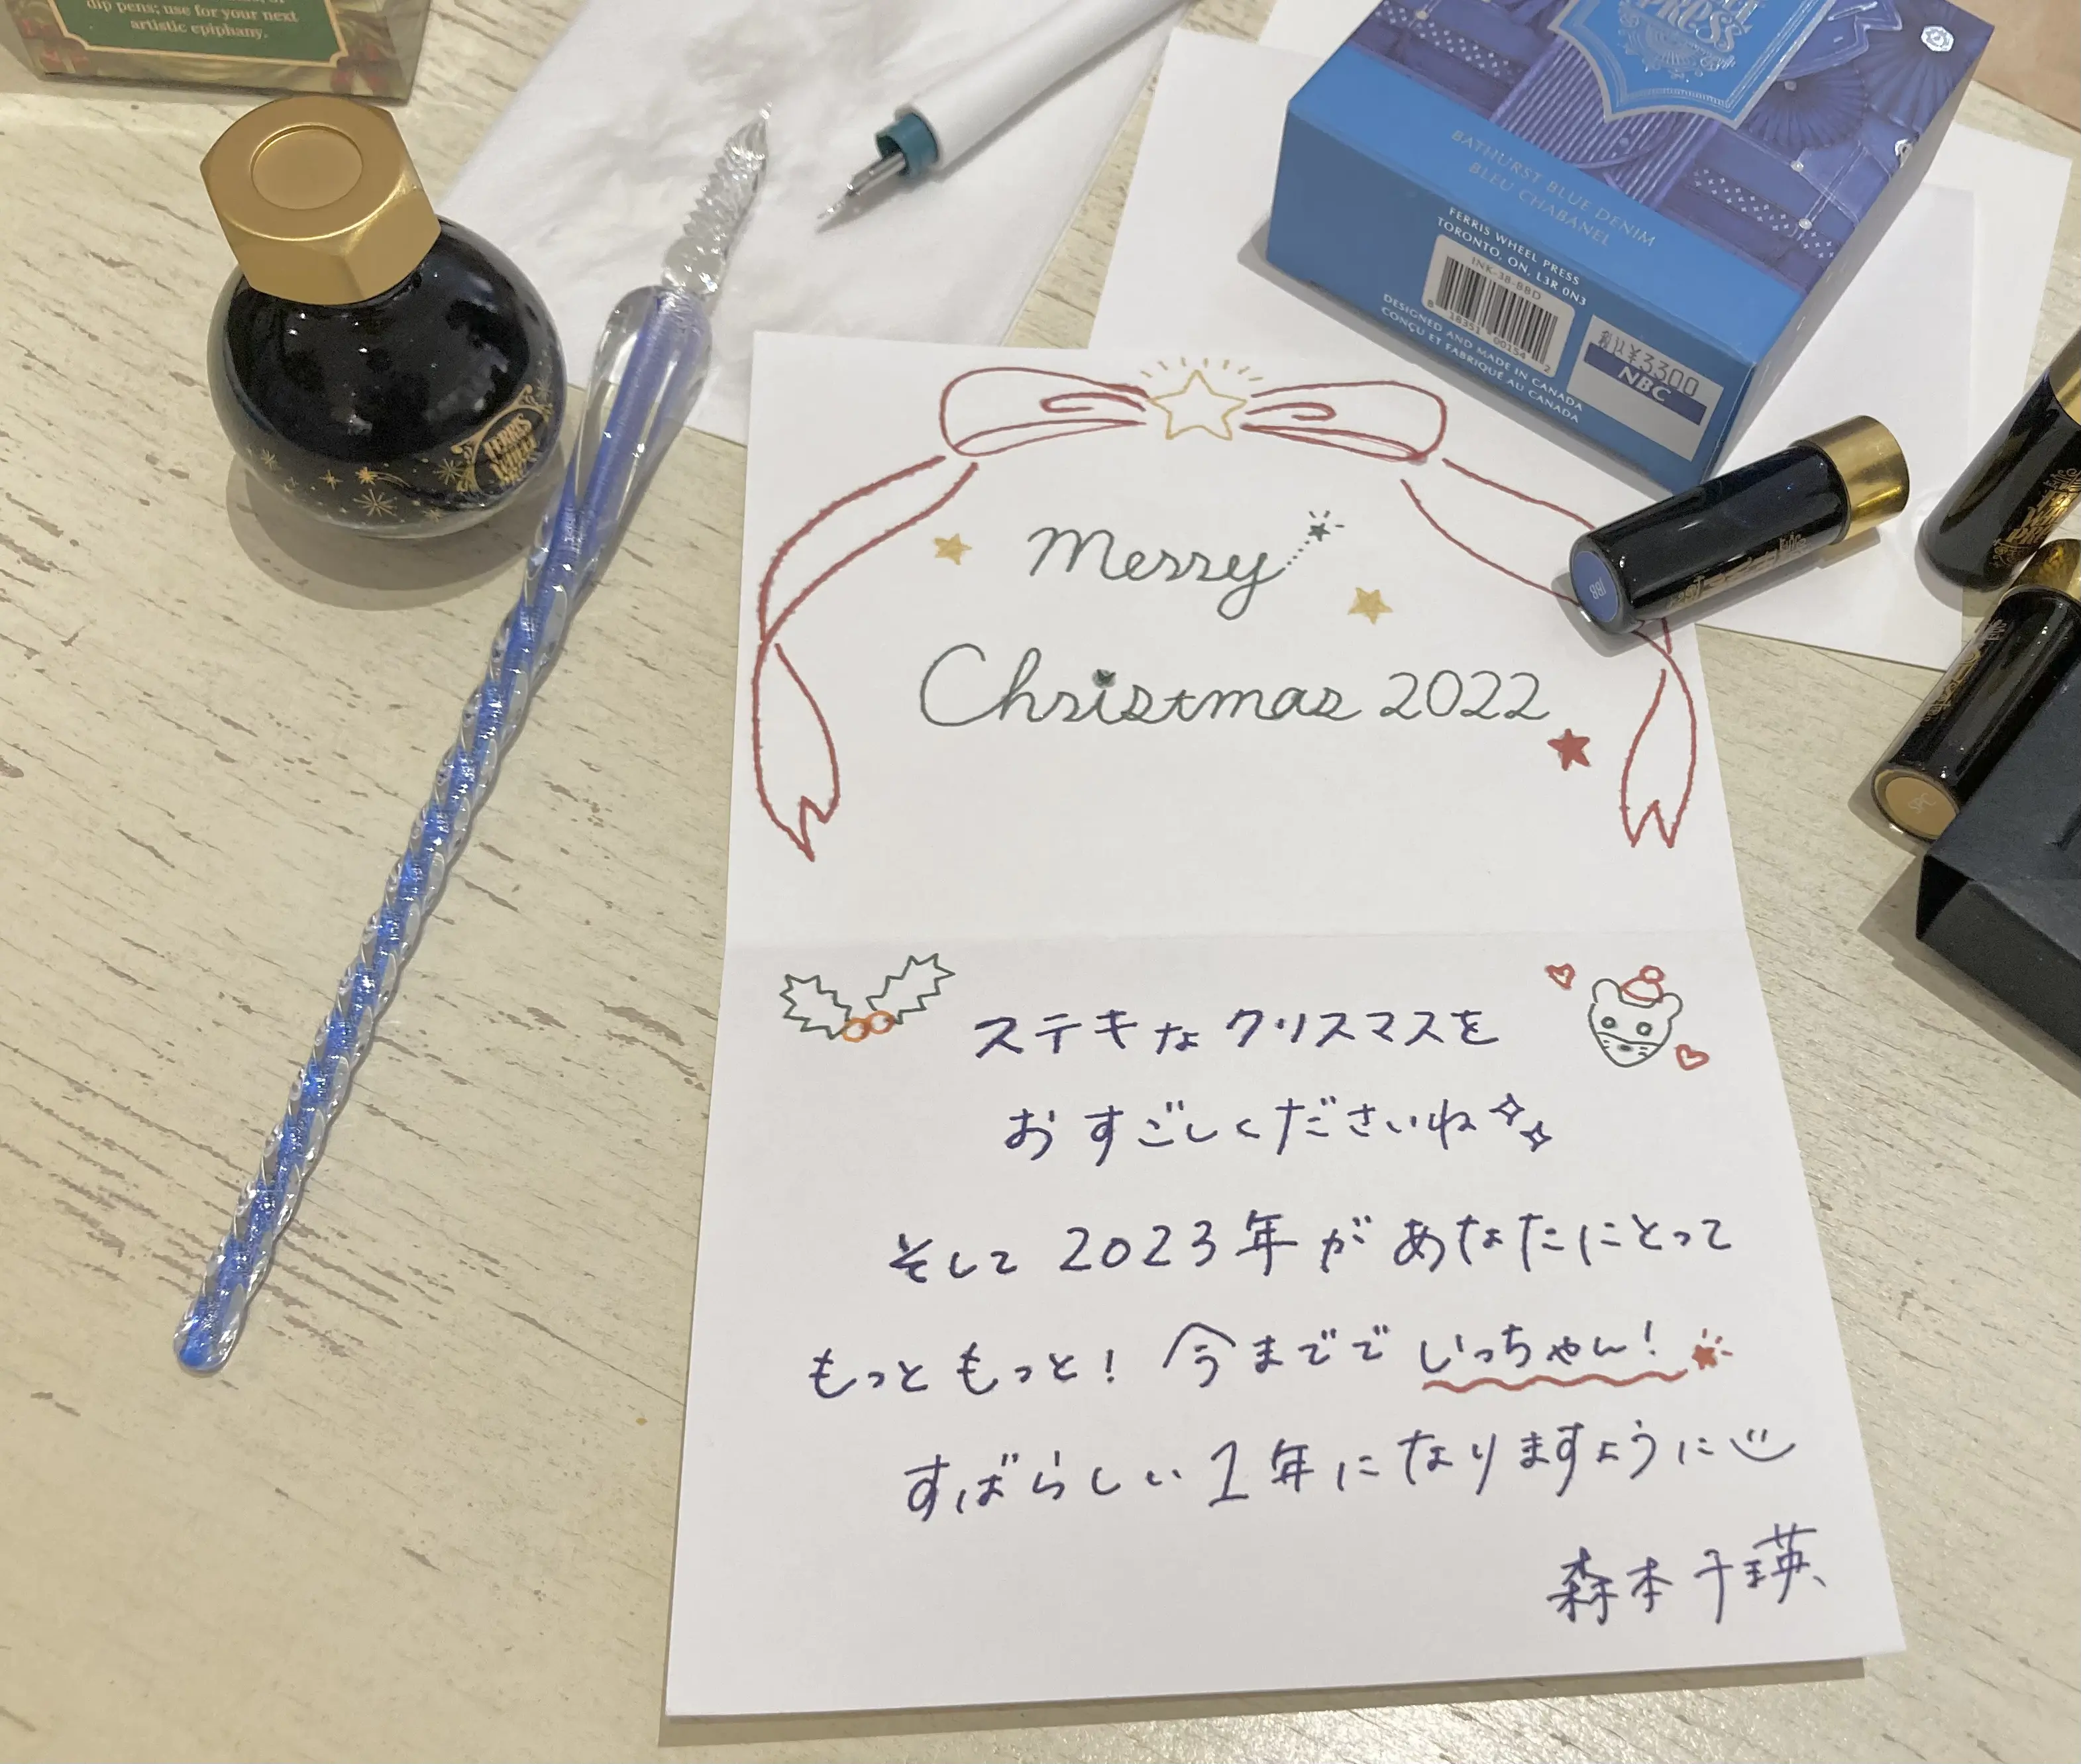 dip pens; use for your next
artistic epiphany.
FERRIS
WHEEL
PRESS
BATHURST BLUE DENIM
BLEU CHABANEL
FERRIS WHEEL PRESS
TORONTO, ON, L3R 0N3
INK-38-BBD
18351 00154 2
DESIGNED AND MADE IN CANADA
CONÇU ET FABRIQUÉ AU CANADA
税込¥3300
NBC
Merry
Christmas 2022
ステキなクリスマスを
おすごしくださいね
そして2023年があなたにとって
もっともっと!今まででいっちゃん!
すばらしい1年になりますように
森本千瑛